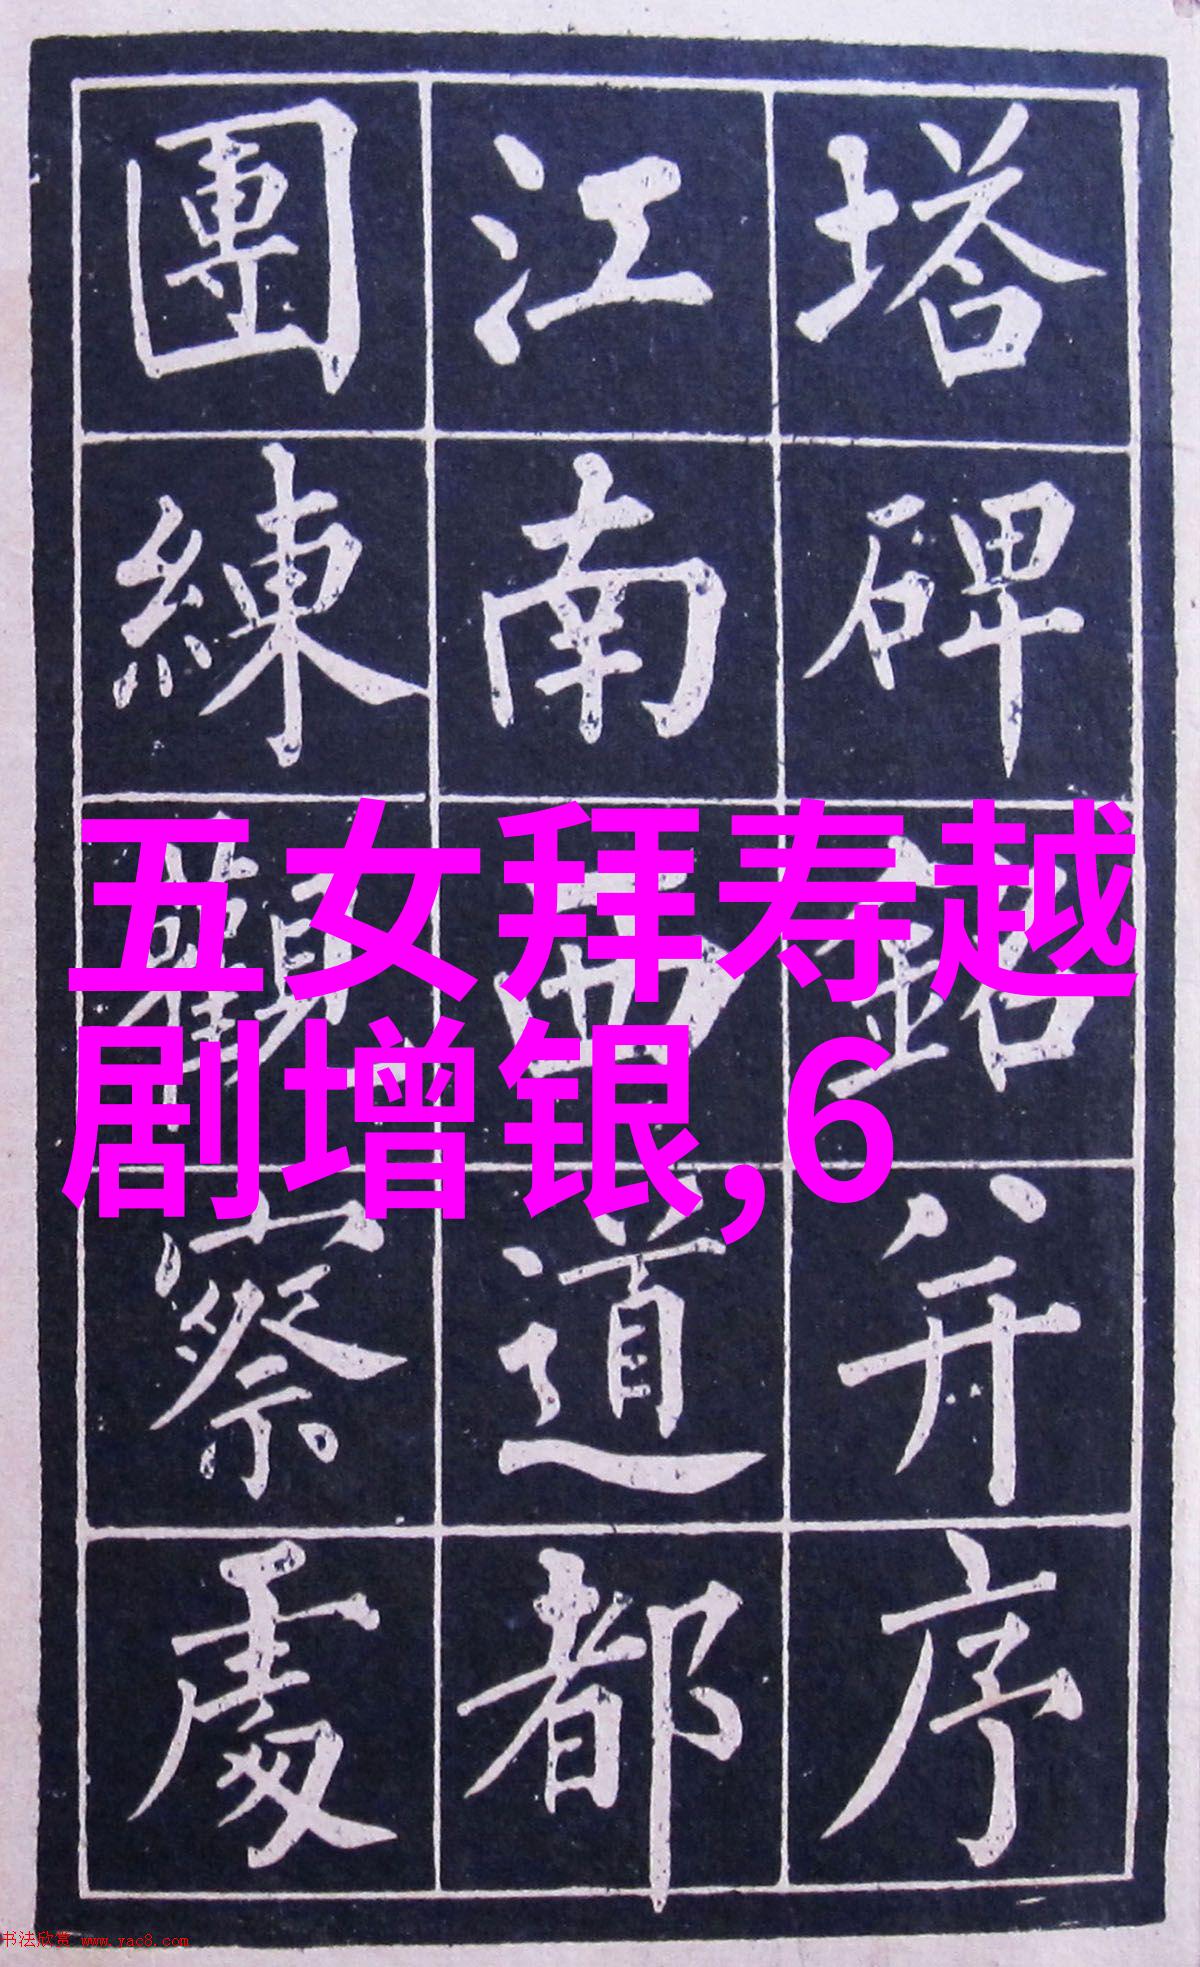 塔碑銘并序
江南西道都
團練觀察處
五女拜寿越
剧增银,6
书法欣赏 www.yac8.com